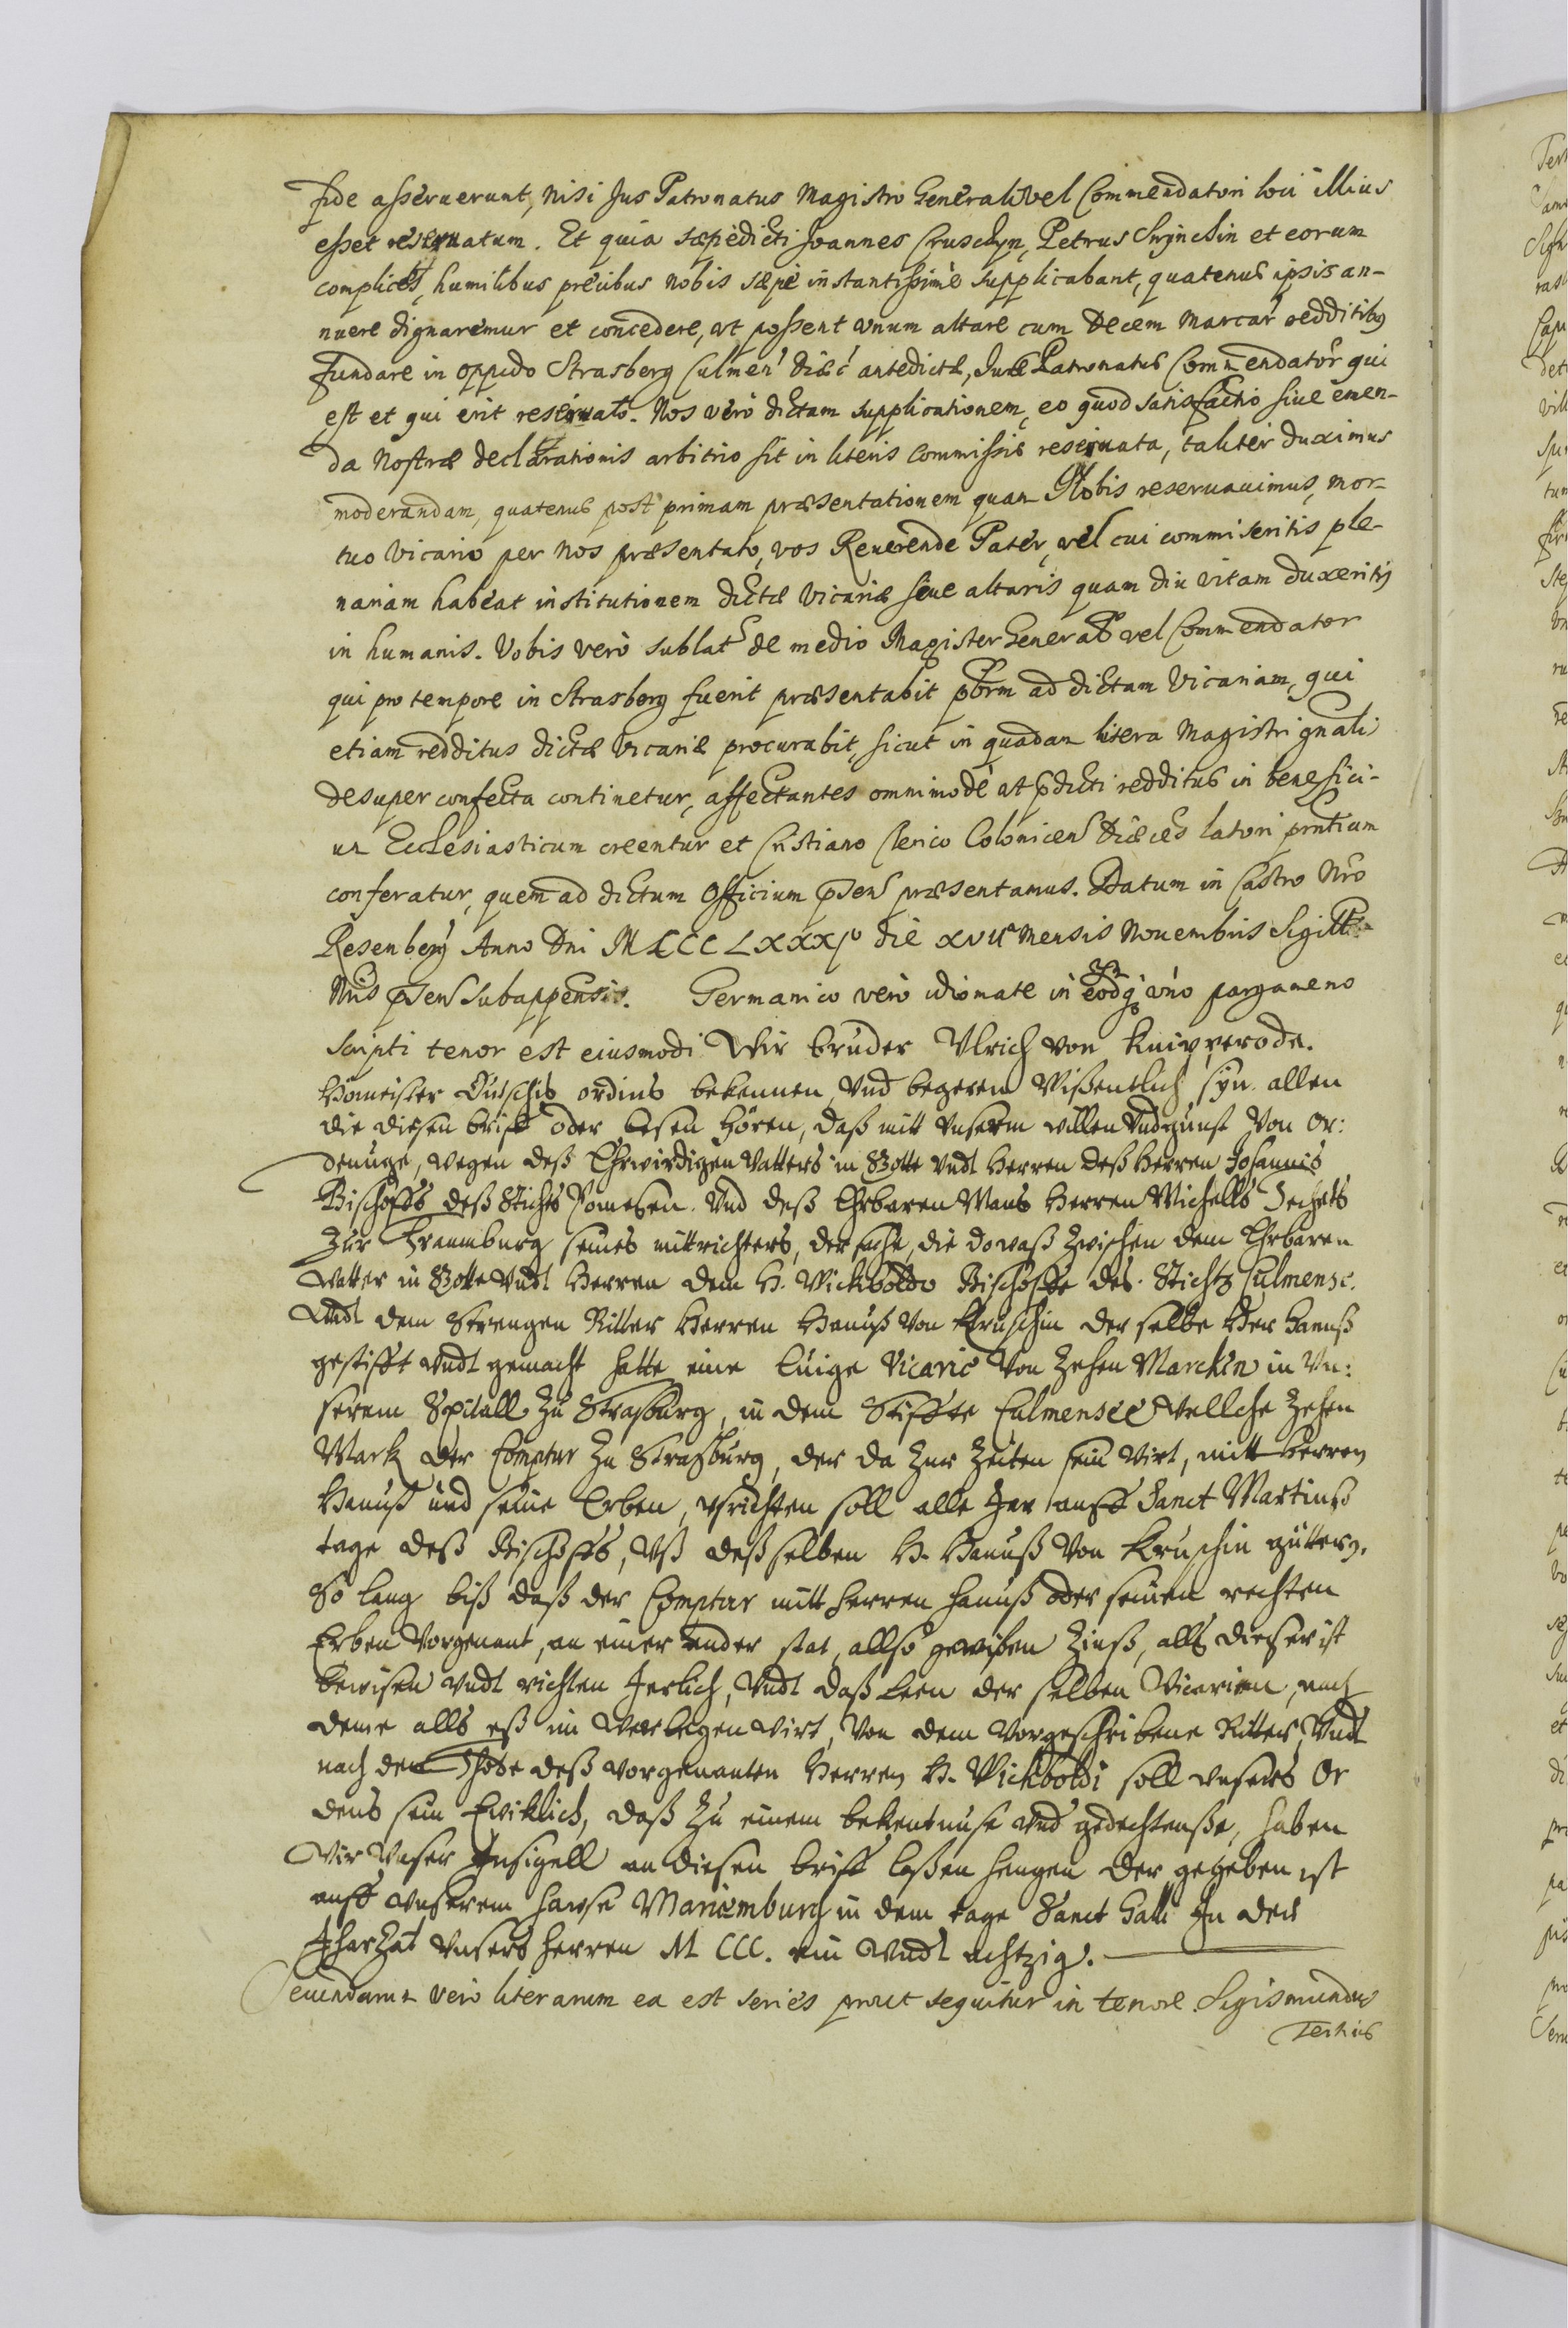 fide asseruerunt, nisi Jus Patronatus Magistro Generali vel Commendatori loci illius
esset reseruatum. Et quia sæpèdicti Joannes Cruschyn, Petrus Swynchin et eorum
complices, humilibus precibus nobis sæpè instantissimè supplicabant, quatenus ipsis an-
nuere dignaremur et concedere, vt possent vnum altare cum Decem Marcar redditibus
fundare in oppido Strasberg Culmen Diæc antedictæ, Jure Patronatus Commendator qui
est et qui erit reseruato. Nos verò dictam supplicationem, eo quod satisfactio siue emen-
da Nostræ declarationis arbitrio sit in literis commissis reseruata, taliter duximus
moderandam, quatenus post primam præsentationem quam Nobis reseruauimus, mor-
tuo Vicario per Nos præsentato, vos Reuerende Pater, vel cui commiseritis ple-
nariam habeat institutionem dictæ Vicariæ siue altaris quam diu vitam duxeritis
in humanis. Vobis verò sublat de medio Magister General vel Commendator
qui pro tempore in Strasberg fuerit præsentabit pbrm ad dictam Vicariam, qui
etiam redditus dictæ Vicariæ procurabit, sicut in quadam litera Magistri gnali
desuper confecta continetur, affectantes omnimodè vt pdicti redditus in benefici-
um Ecclesiasticum creentur et Cristiano Clerico Coloniceń Diæces latori pntium
conferatur, quem ad dictum Officium psen præsentamus. Datum in Castro Nro
Resenberg Anno Dni M CCC LXXXI° die XVII mensis Nouembris Sigill
Nris psen subappensis. Germanico verò idiomate in eodq vno pargameno
scripti tenor est eiusmodi Wir bruder Vlrich von Knipperode.
Homeister Dutschis ordins bekennen, vnd begeren wißentlich syn allen
die diesen briff oder lesen hören, daß mitt vnserm willen vnd gunst von or:
denuge, wegen deß Ehrwirdigen Vatters in Gotte vndt Herren deß herren Johannis
Bischoffs deß Stichts Pomesen. Vnd deß Ehrbaren Mans Herren Michells Dechets
Zur Frawmburg seines mittrichters, der sache, die do waß zwischen dem Ehrbaren
Vatter in Gotte vndt Herren dem H. Wickboldo Bischoffe des Stichts Culmense.
Vndt dem Strengen Ritter Herren Hannß von Kruschin der selbe Her Hannß
gestifft vndt gemacht hatte eine Euige Vicarie von zehen Marcken in Vn:
serem Spitall zu Straßburg, in dem Stiffte Culmensee Wellche zehen
Mark der Comptur zu Straßburg, der da zur zeiten sein wirt, mitt Herren
Hannß und seine Erben, vsrichten soll alle Jar auff Sanct Martins
tage deß Bischoffs, vß deßselben H. Hannß von Kruschin gütteren.
So lang biß daß der Comptur mitt herren hannß oder seinen rechten
Erben vorgenant, an einer ander stat, allso gewißen zinß, alls dieser ist
bewisen vndt richten Jerlich, vndt daß Leen der selben Vicarien, nach
deme alls eß im verlegen wirt, von dem vorgeschribene Ritter, Vndt
nach dem Thode deß vorgenanten Herren H. Wickboldi soll vnsers Or
dens sein Ewiklich, daß zu einem bekentnuse vnd gedechtenße, haben
Wir Vnser Insigell an diesen briff laßen hengen der gegeben ist
auff vnserem hawse Mariemburg in dem tage Sanct Galli In der
Jharzal vnsers herren M CCC. ein vndt achtzig.
Secundarum verò literarum ea est series prout sequitur in tenore. Sigismundus
Tertius